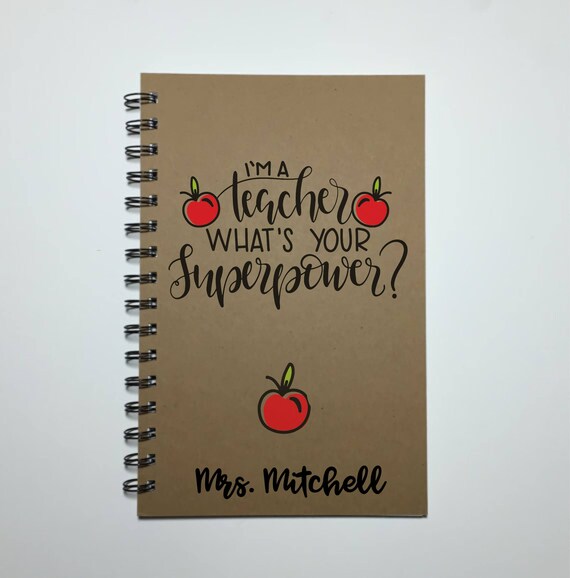 I'M A
teacher
WHAT'S YOUR
Superpower?
Mrs. Mitchell